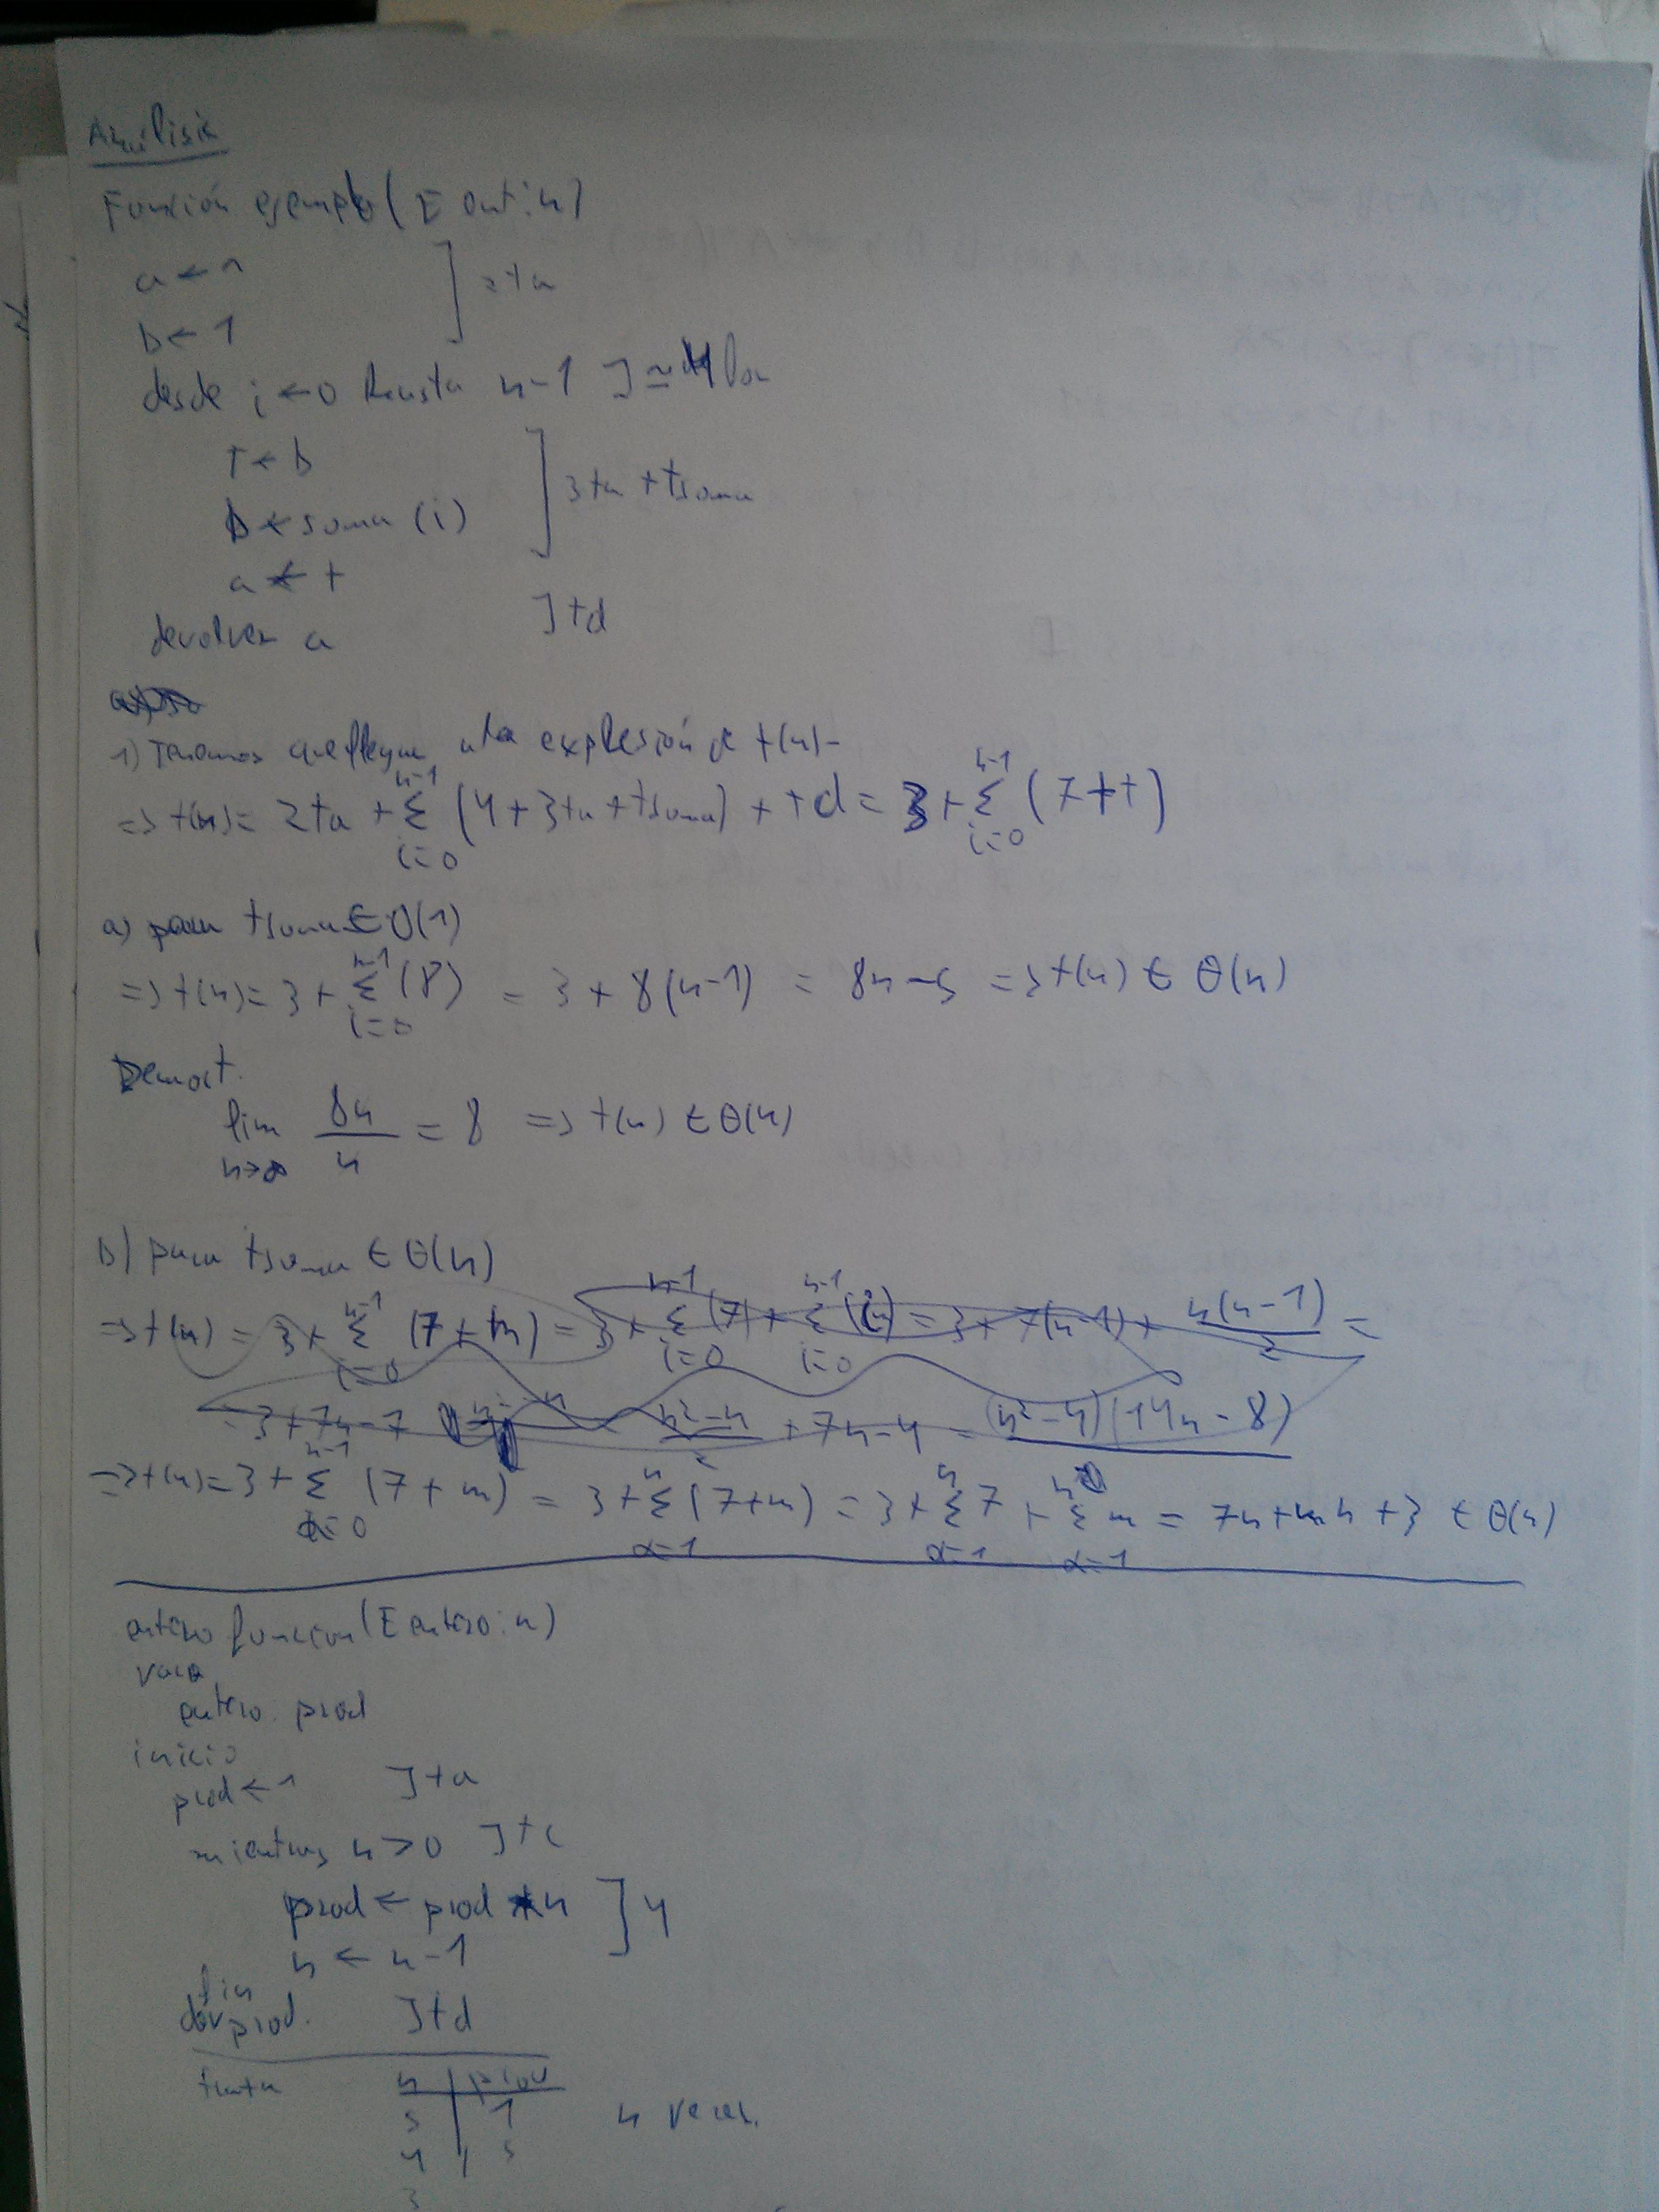 Análisis
Función ejemplo(E ent: n)
a ← 1
b ← 1 ] 2ta
desde i ← 0 hasta n-1 ] ≃ 4
t ← b
b ← suma (i) ] 3ta + tsuma
a ← t
devolver a ] td
1) Tenemos que llegar a la expresión de t(n)-
=> t(n) = 2ta + Σ_{i=0}^{n-1} (4 + 3ta + tsuma) + td = 3 + Σ_{i=0}^{n-1} (7 + t)
a) para tsuma ∈ O(1)
=> t(n) = 3 + Σ_{i=0}^{n-1} (8) = 3 + 8(n-1) = 8n-5 => t(n) ∈ θ(n)
Demost.
lim_{n→∞} 8n/n = 8 => t(n) ∈ θ(n)
b) para tsuma ∈ θ(n)
=> t(n) = 3 + Σ_{i=0}^{n-1} (7 + n) = 3 + Σ_{i=0}^{n-1} (7) + Σ_{i=0}^{n-1} (i) = 3 + 7(n-1) + n(n-1)/2 =
= 3 + 7n - 7 (n²-n)/2 + 7n-4 = (n²-n)(14n-8)
=> t(n) = 3 + Σ_{i=0}^{n-1} (7 + m) = 3 + Σ_{α=1}^{n} (7+m) = 3 + Σ_{α=1}^{n} 7 + Σ_{α=1}^{n} m = 7n + mn + 3 ∈ θ(n)
entero funcion(E entero: n)
var
entero: prod
inicio
prod ← 1 ] ta
mientras n > 0 ] tc
prod ← prod * n
n ← n-1 ] 4
fin
dev prod. ] td
n | prod
5 | 1 n veces.
4 | 5
3